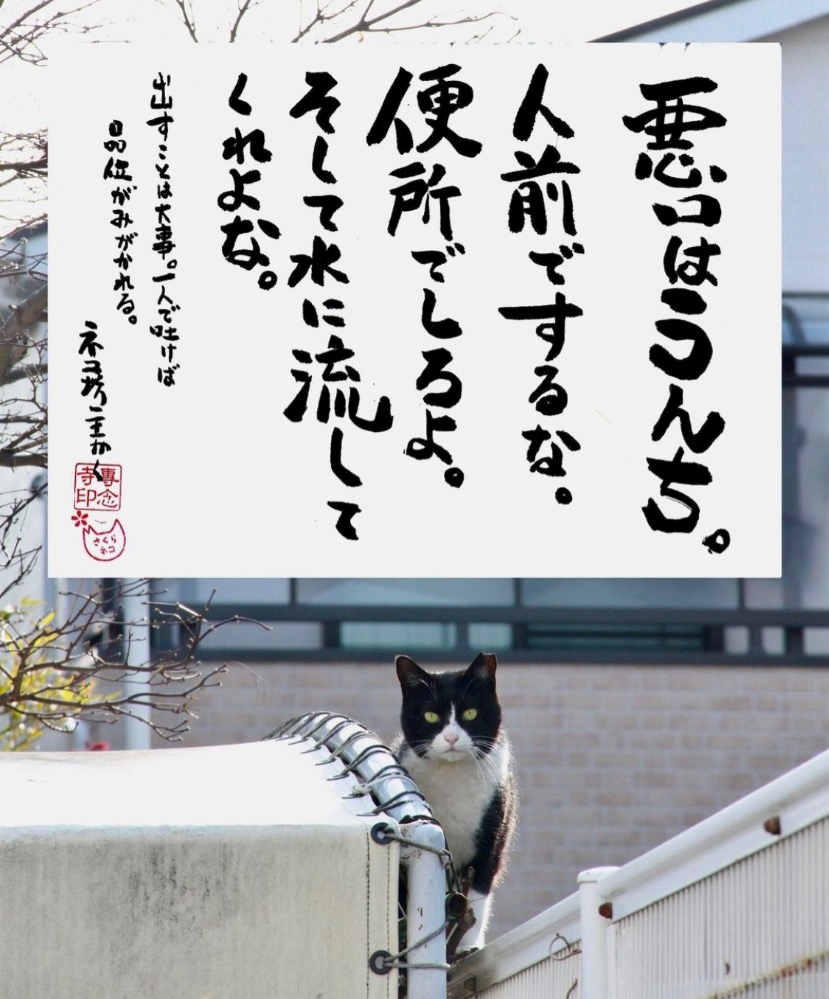 悪口はうんち。
人前でするな。
便所でしろよ。
そして水に流して
くれよな。
出すことは大事。一人で吐けば
品位がみがかれる。
ネコ坊主かく
専念
寺印
さくら
ネコ